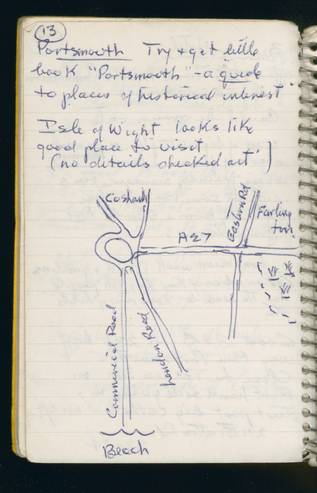 13
Portsmouth Try + get little
book "Portsmouth" - a guide
to places of historical interest
Isle of Wight looks like
good place to visit
(no details checked out)
Cosham
A27
Eastern Rd
Farlington
Commercial Road
London Road
Beach